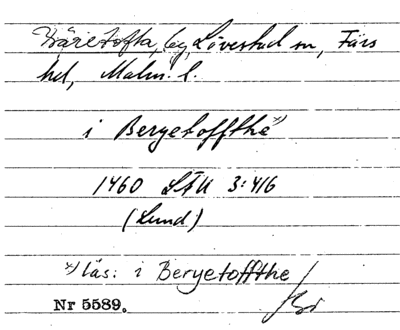 Bäretofta, by, Lövestad sn, Färs
hd, Malm. l.
i Beryetoffthe x)
1460 LÄU 3:416
(Lund)
x) läs: i Beryetoffthe
Nr 5589.